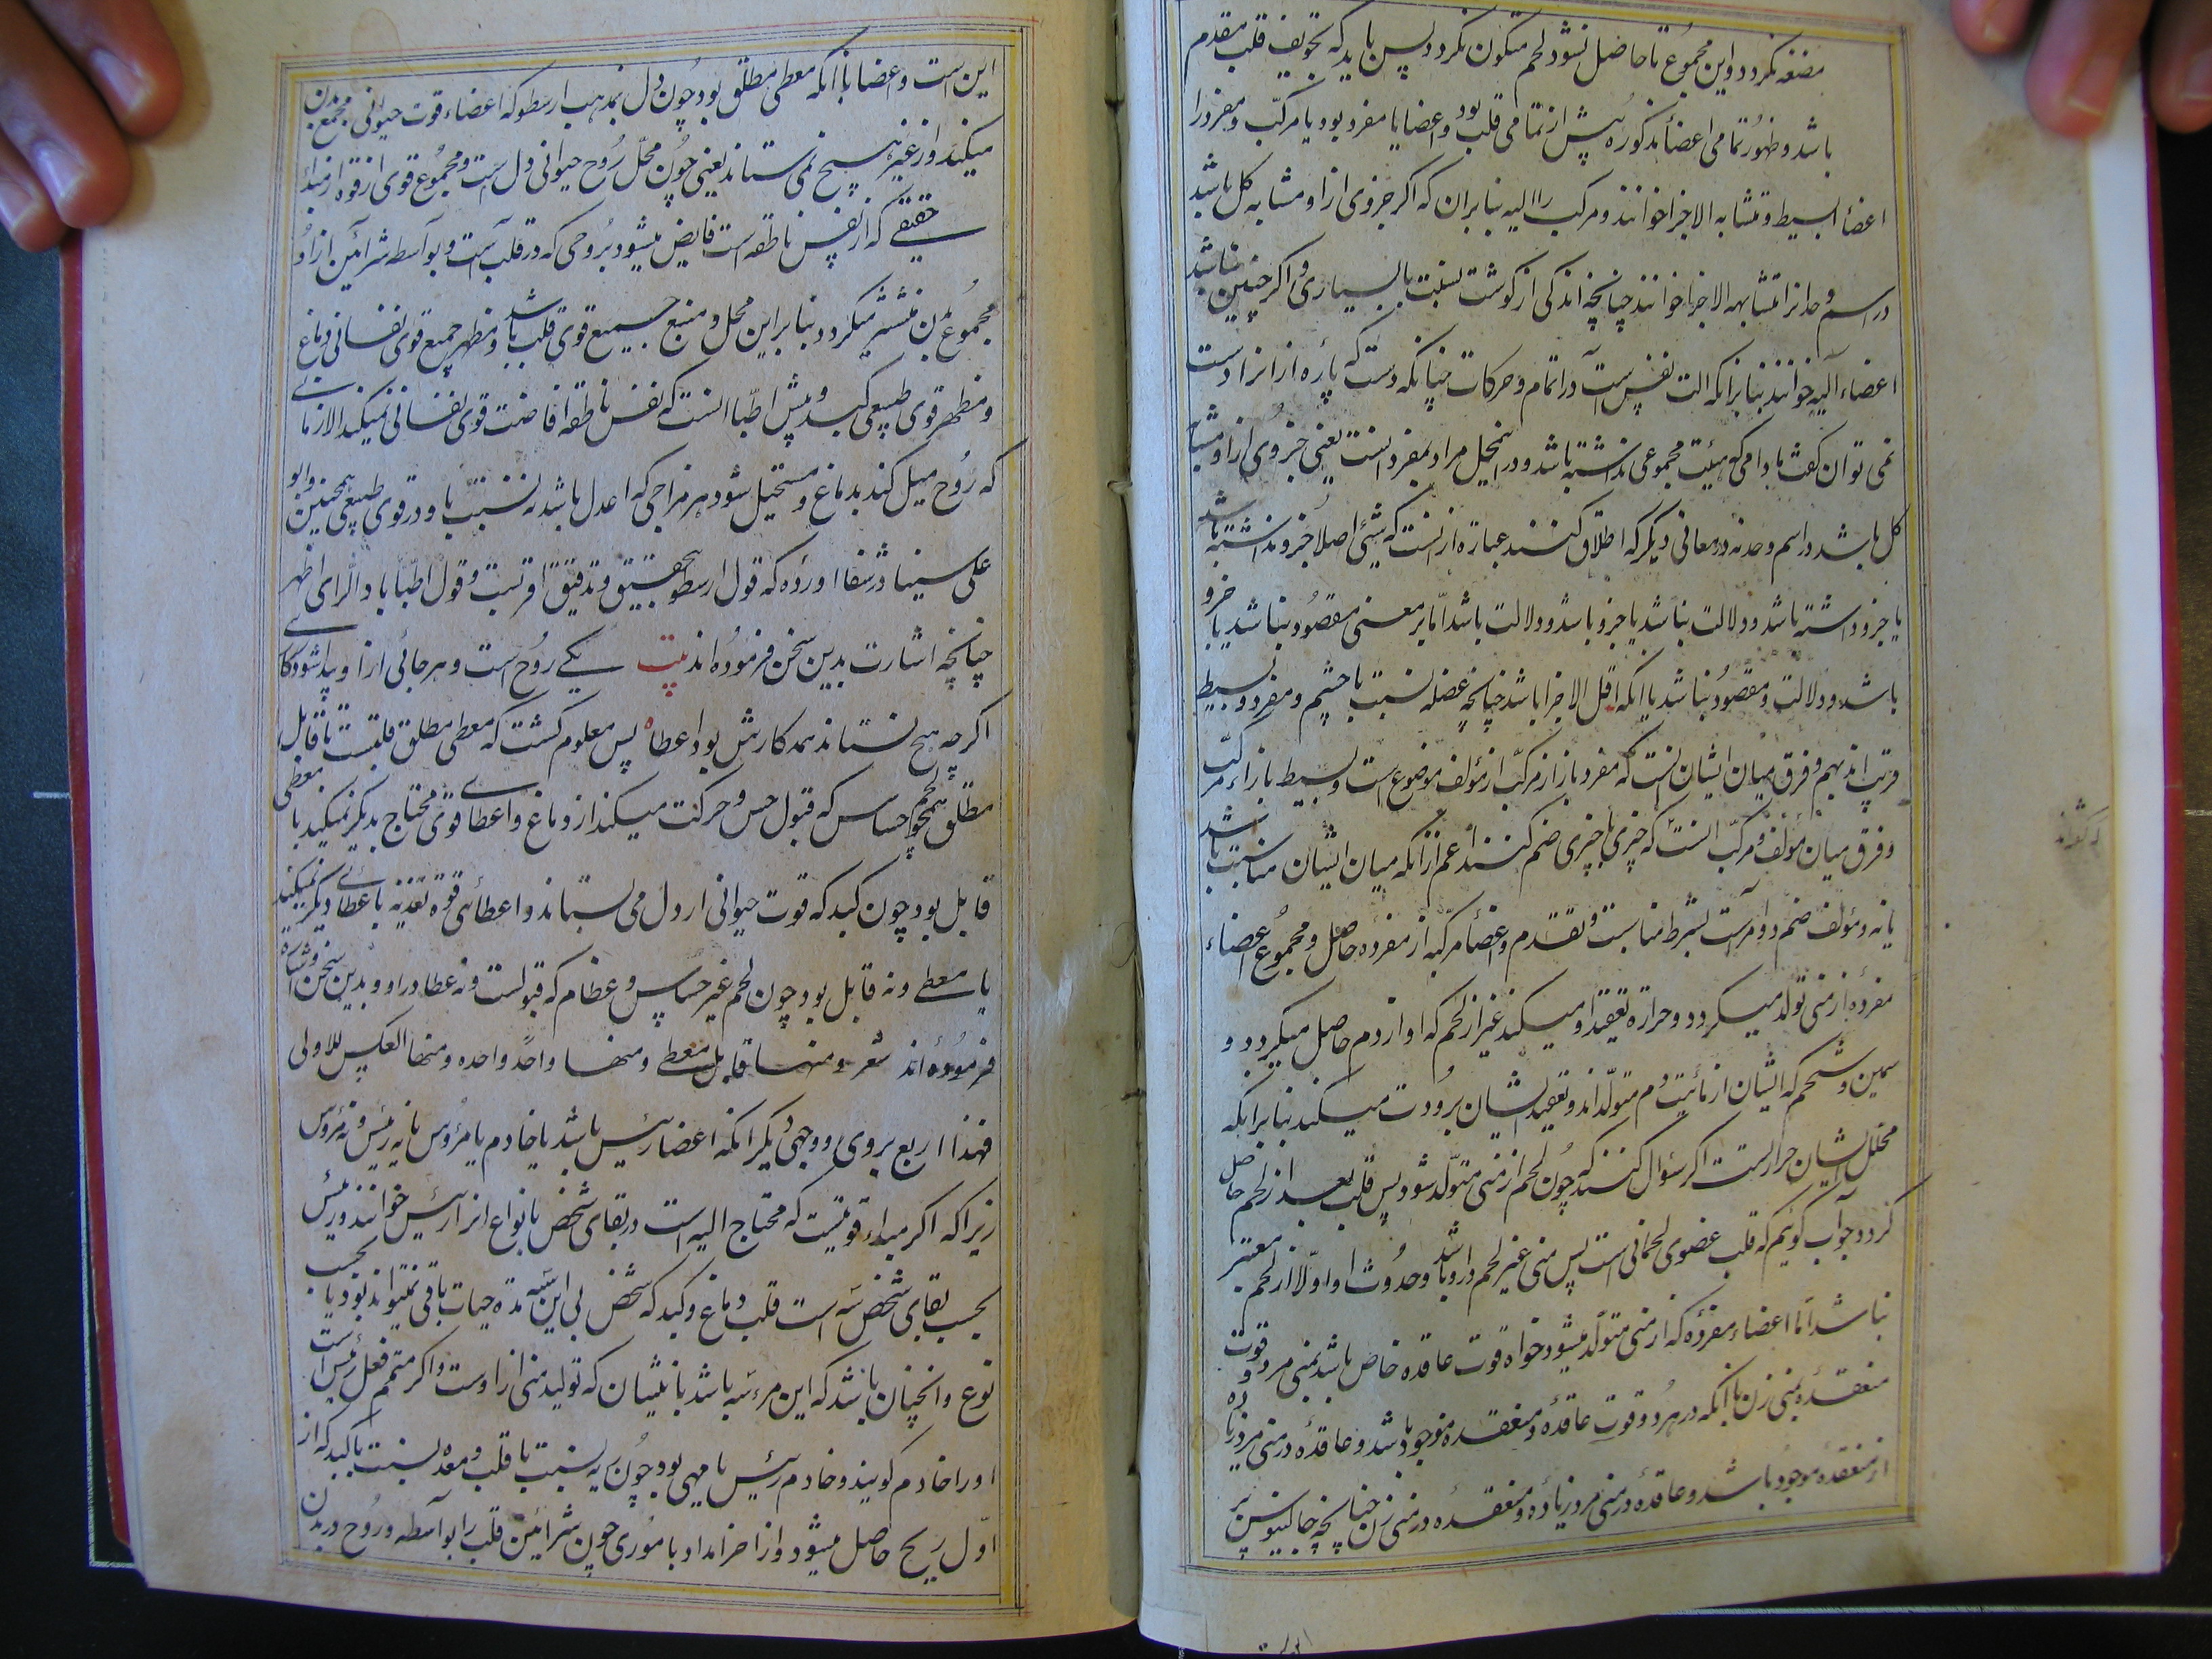 مضغه نکردد و این مجموع تا حاصل نشود لحم متکون نکردد پس باید که تجویف قلب مقدم
باشد و ظهور تمامی اعضأ مذکوره پیش از تمامی قلب بود و اعضا یا مفرد بود یا مرکب و مفرد را
اعضأ بسیط و متشابه الاجزا خوانند و مرکب را الیه بنابران که اکر جزوی ازا و مشابه کل باشد
در اسم و حد انرا متشابهه الاجزا خوانند چنانچه اندکی از کوشت نسبت بابسیاری و اکر چنین نباشد
اعضاء آلیه خوانند بنابرانکه الت نفس است در اتمام و حرکات چنانکه دست که پاره از انرا دست
نمی توان کفت مادامی که هیئت مجموعی نداشته باشد و درینمحل مراد بمفرد انست یعنی جزوی ازا و مشابه
کل باشد در اسم و حد نه در معانی دیکر که اطلاق کنند عبارة از انست که شیئی اصلا جزو نداشته باشد
یا جزو داشته باشد و دلالت نباشد یا جزو باشد و دلالت باشد اما بر معنی مقصود نباشد یا جزو
باشد و دلالت و مقصود نباشد یا انکه اقل الاجزا باشد چنانچه عضله نسبت با چشم و مفرد و بسیط
قریب اند بهم و فرق میان ایشان انست که مفرد بازاء مرکب از مؤلف موضوع است و بسیط بازاء مرکب
و فرق میان مؤلف و مرکب انست که چیزی باچیزی ضم کنند اعم از انکه میان ایشان مناسبت باشد
یا نه و مؤلف ضم دو امرست بشرط مناسبت و تقدم و اعضأ مرکبه از مفرده حاصل و مجموع اعضاء
مفرده از منی تولد میکردد و حرارة تعقید او میکند غیر از لحم که او از دم حاصل میکردد و
سمین و شحم که ایشان از مائیت دم متولد اند و تعقید ایشان برودت میکند بنابرانکه
محلل ایشان حرارتست اکر سؤال کنند که چون لحم از منی متولد شود پس قلب بعد از لحم حاصل
کردد جواب کوئیم که قلب عضوی لحمانی است پس منی غیر لحم در و باشد و حدوث او اولا از لحم معتبر
نباشد اما اعضاء مفرده که از منی متولد میشود خواه قوت عاقده خاص باشد بمنی مرد و قوت
منعقده بمنی زن یا انکه در هر دو قوت عاقده و منعقده موجود باشد و عاقده در منی مرد زیاده
از منعقده موجود باشد و عاقده در منی مرد زیاده و منعقده در منی زن چنانچه جالینوس بر
این است و اعضا یا انکه معطی مطلق بود چون دل بمذهب ارسطو که اعضاء قوت حیوانی مجمع بدن
میکند و از غیر هیچ نمی ستاند یعنی چون محل روح حیوانی دل است و مجموع قوی از قوه از مبدأ
حقیقی که از نفس ناطقه است فایض میشود بروحی که در قلب است و بواسطه شرائین ازا و
مجموع بدن منتشر میکردد بنابراین محل و منبع جمیع قوی قلب باشد و مظهر جمیع قوی نفسانی دماغ
و مظهر قوی طبیعی کبد و پیش اطبا انست که نفس ناطقه افاضت قوی نفسانی نمیکند الا زمانی
که روح میل کند بدماغ و مستحیل شود بر مزاجی که اعدل باشد نه نسبت با و در قوی طبیعی همچنین و ابو
علی سینا در شفا اورده که قول ارسطو بتحقیق و تدقیق اقربست و قول اطبا بباد الرای اظهر
چنانچه اشارت بدین سخن فرموده اند بیت یکی روح است و هر جائی ازا و پیدا شود کاری
اکرچه هیچ نستاند همه کارش بود اعطاء پس معلوم کشت که معطی مطلق قلبست یا قابل
مطلق همچو لحم حساس که قبول حس و حرکت میکند از دماغ و اعطای قوی محتاج بدیکر نمیکند یا معطی
قابل بود چون کبد که قوت حیوانی از دل می ستاند و اعطأی قوة تغذیه باعطای دیکر نمیکند
یا معطی و نه قابل بود چون لحم غیر حساس و عظام که قبولست و نه عطا در او و بدین سخن اشاره
فرموده اند شعر و منها قابل معط و منها واحد واحده و منها العکس للاولی
فهذا اربع بروی و وجهی دیکر انکه اعضا رئیس باشد یا خادم یا مرؤس یا نه رئیس و نه مرؤس
زیرا که اکر مبداء قوتیست که محتاج الیه است در بقای شخص یا نوع انرا رئیس خوانند و رئیس
بحسب بقای شخص سه است قلب و دماغ و کبد که شخص بی این سه مدة حیات باقی نمیتواند بود یا بحسب
نوع و انچنان باشد که این هر سه باشد با انثیان که تولید منی ازا وست و اکر متمم فعل رئیس است
او را خادم کویند و خادم رئیس یا مهیی بود چون ریه نسبت با قلب و معده نسبت با کبد که از
اول ریح حاصل میشود و از اخر امداد یا موری چون شرائین قلب را بواسطه و روح در بدن